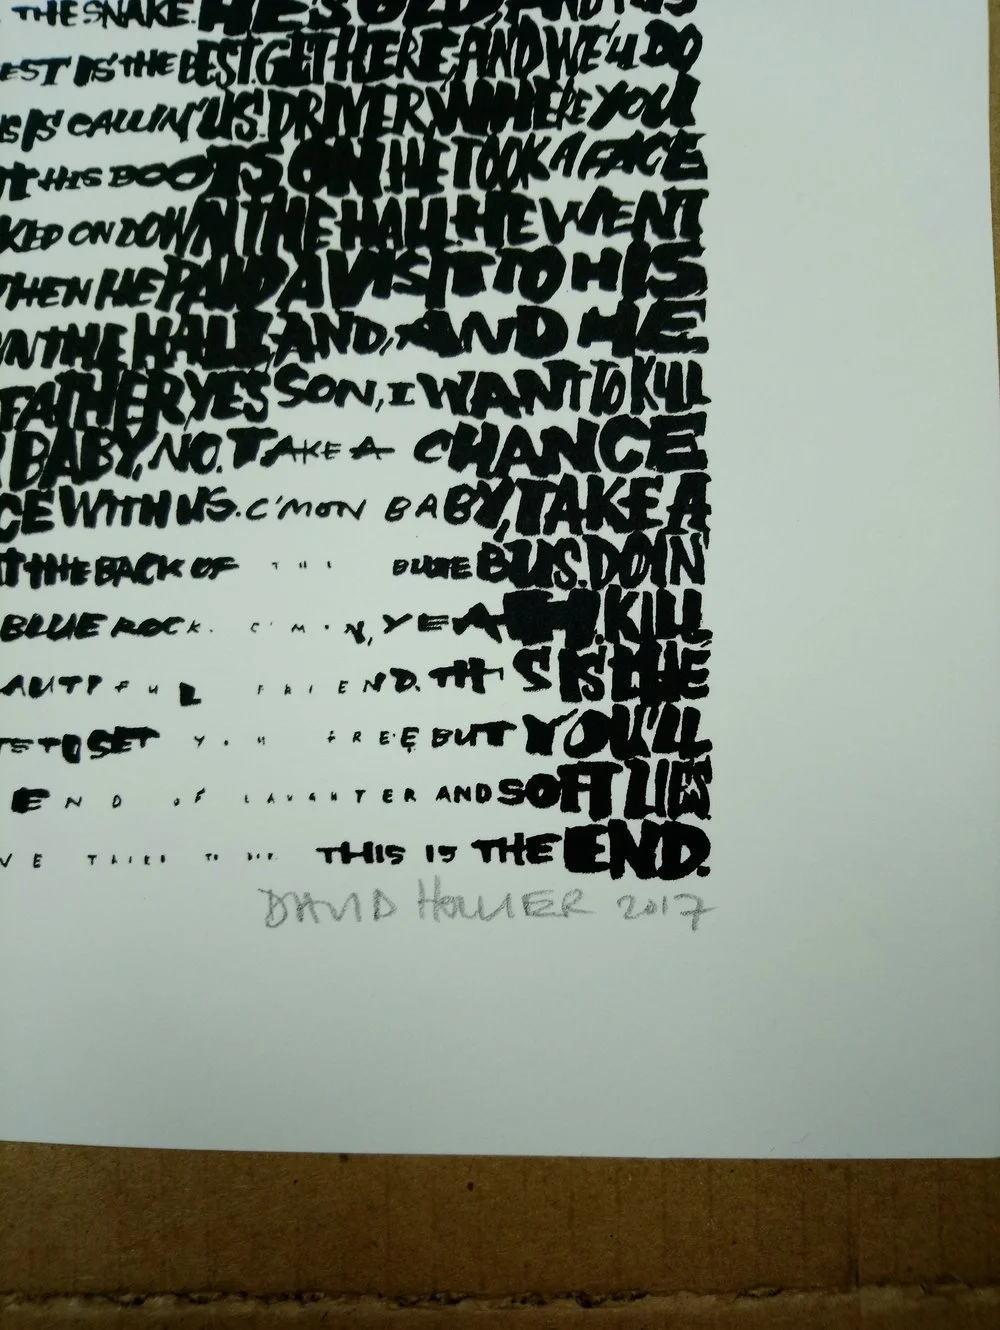 THE SNAKE. HE'S OLD, AND HIS
EST IS THE BEST. GET HERE, AND WE'LL DO
US IS CALLIN' US. DRIVER, WHERE YOU
T HIS BOOTS ON HE TOOK A FACE
KED ON DOWN THE HALL. HE WENT
THEN HE PAID A VISIT TO HIS
WN THE HALL, AND, AND HE
FATHER, YES SON, I WANT TO KILL
BABY, NO. TAKE A CHANCE
CE WITH US. C'MON BABY, TAKE A
T THE BACK OF THE BLUE BUS. DOIN'
BLUE ROCK. C'MON, YEAH. KILL
AUTIFUL FRIEND. THIS IS THE
TS TO SET YOU FREE BUT YOU'LL
END OF LAUGHTER AND SOFT LIES
VE TRIED TO DIE. THIS IS THE END.
DAVID HOLLIER 2017